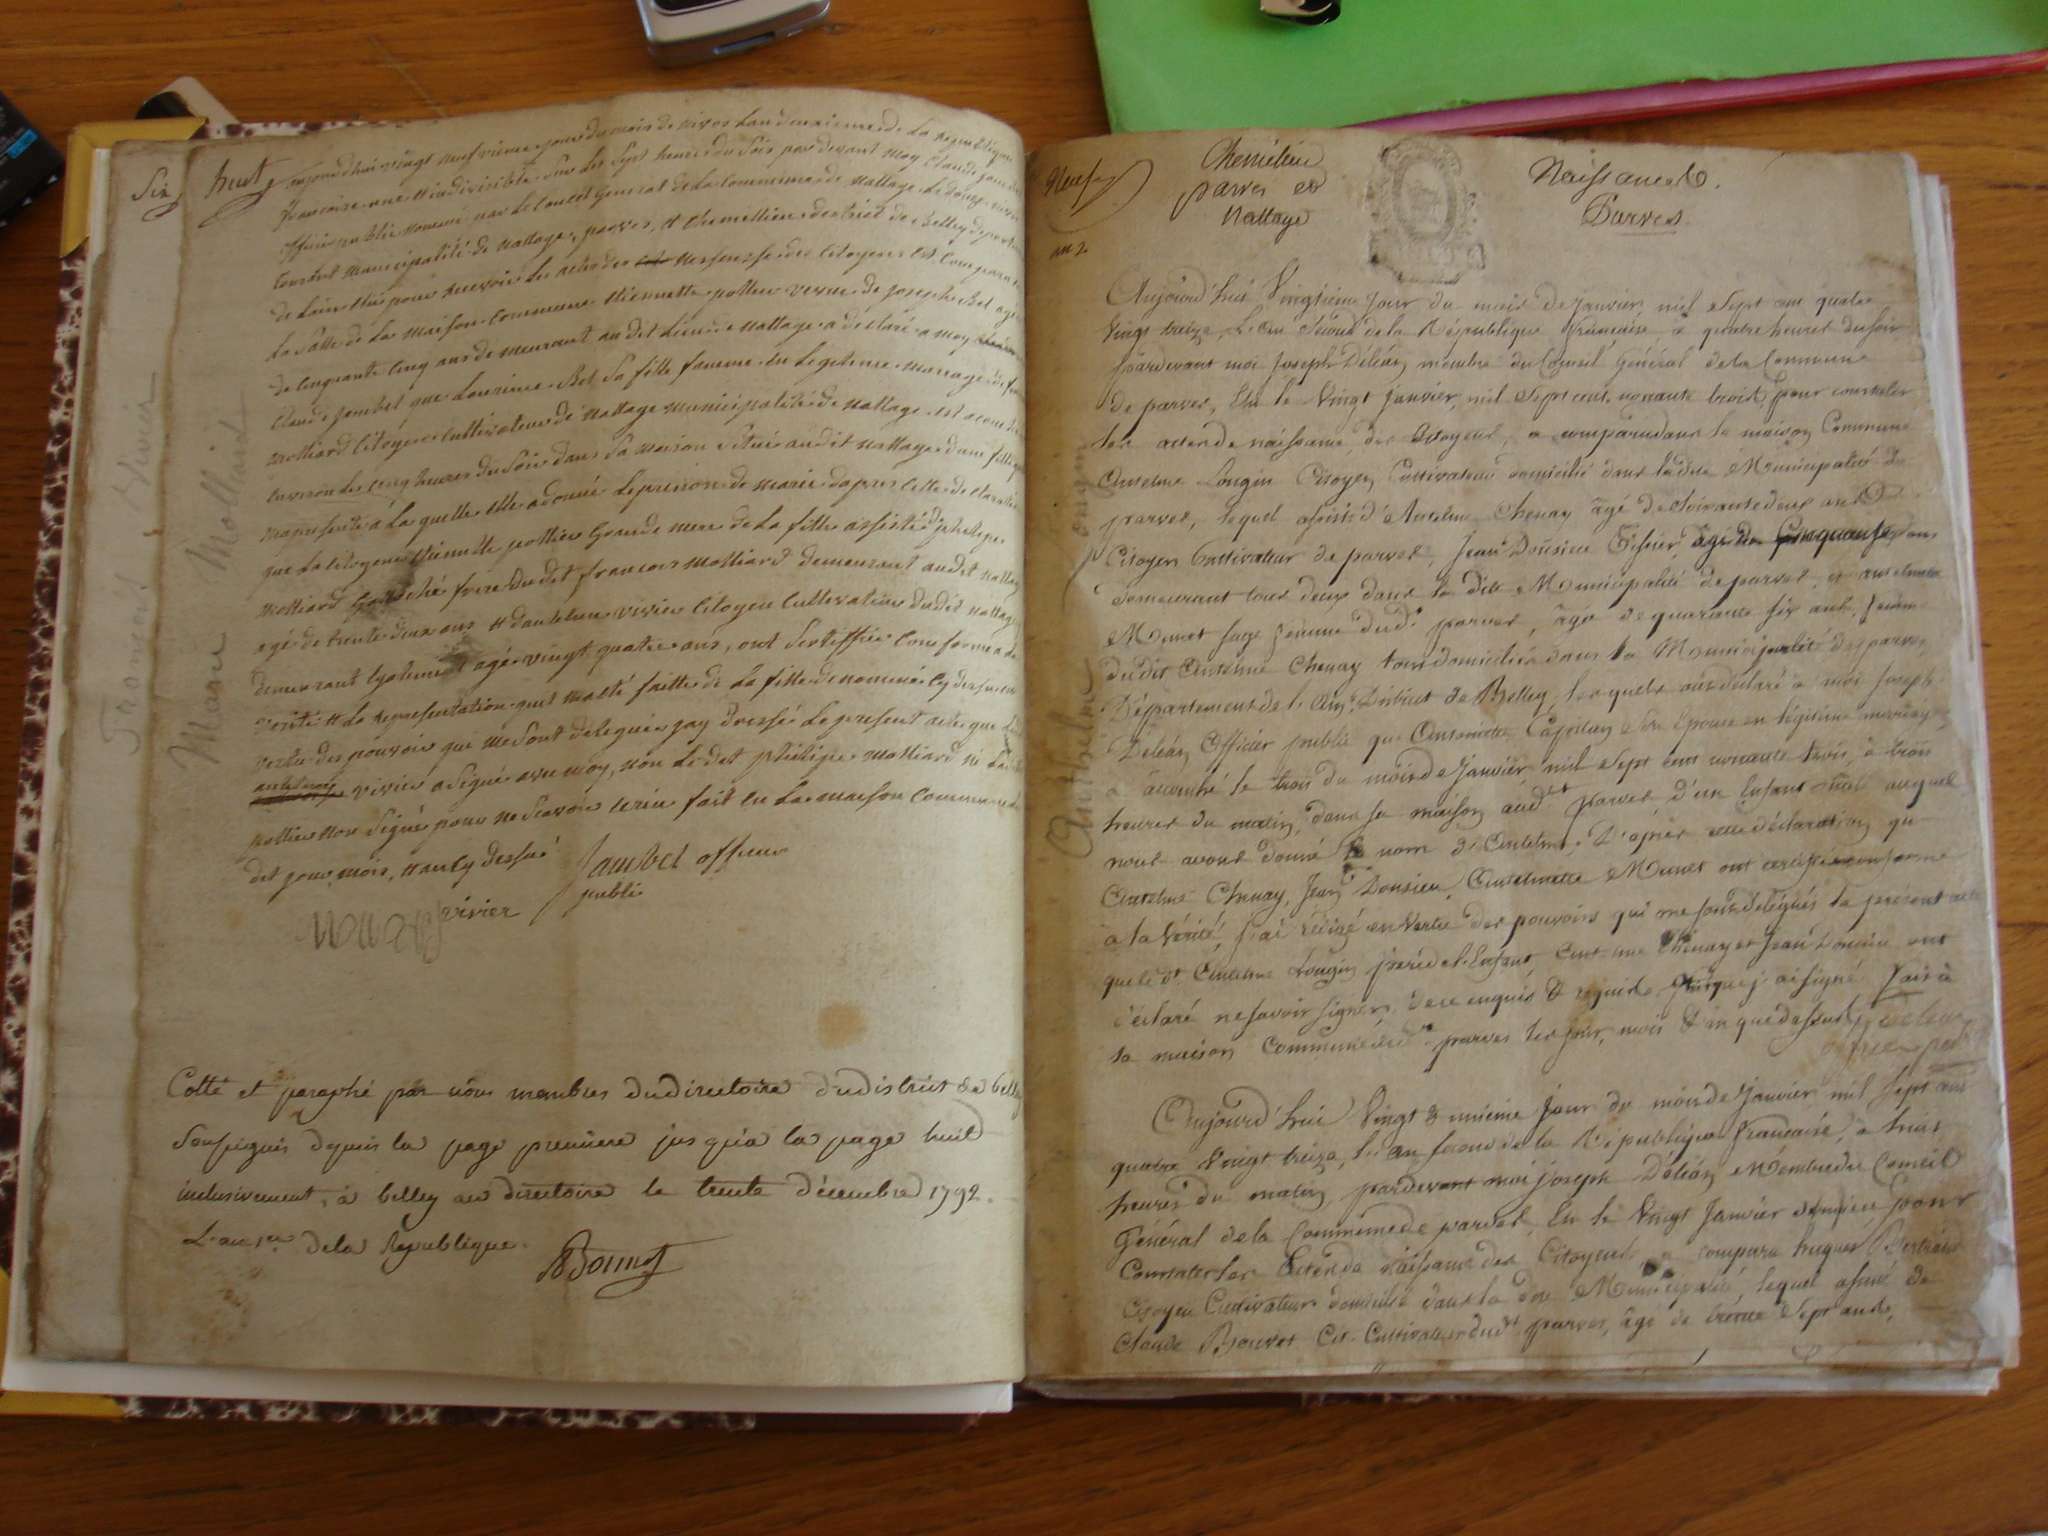 Six
huit
aujourdhui vingt neufvieme jour du mois de nivos lan deuxieme de La republique
francoise une et indivisible sur les sept heures du soir par devant moy Claude jou
officier public nommé par le Conseil General de La Commune de nattage Le douze
Contont municipalité de nattage, parves, et Chemillieu district de Belley depart
de Lain élu pour recevoir les actes des nessensse des Citoyens est Compara
La salle de La maison Commune Etiennette pottier veuve de joseph Bel agé
de Cinquante Cinq ans de meurant au dit Lieu de nattage a déclaré a moy
Claude jambel que Laurence Bel sa fille famme en Legitime mariage de
molliard Citoyen Cultivateur de nattage municipalité de nattage est acouché
environ les cinq heures du soir dans sa maison située audit nattage dune fille
represente a La quelle elle a donné Le prenon de marie dapres cette declaration
que La Citoyenne Etiennette pottier Grande mere de La fille assisté de philipe
molliard frere du dit francois molliard demeurant audit nattage
agé de trente deux ans et danthelme vivier Citoyen Cultivateur dudit nattage
demeurant agé vingt quatre ans, ont sertiffié Conforme a la
verité et La representation quit maété faitte de La fille denommé cy dessus en
vertu des pouvoirs qui me sont delegués jay dressé Le present acte que
anthelme vivier a signé avec moy, non Le dit philipe molliard ni La
pottier non signé pour ne scavoir écrire fait en La maison Commune
dit jour, mois, et an cy dessus
Jambel officier
public
vivier
François Vivier
Marie Molliard
Cotté et paraphé par nous membres du directoire du district de belley
soussignés depuis la page premiere jusqu'a la page huit
inclusivement, à belley au directoire le trente décembre 1792.
L'an 1er de la Republique.
Bonnet
Neuf
an 2
Chemilieu
parves et
Nattage
Naissances.
Parves.
Anthelme Longin
Aujourd'hui Vingtieme jour du mois de janvier, mil sept cent quatre
vingt treize, L'an second de la République française, à quatre heures du soir
pardevant moi joseph Déléaz membre du Conseil Général de la Commune
de parves, Elu le Vingt janvier, mil sept cent, nonante trois, pour constater
les actes de naissance des Citoyens, a comparu dans la maison Commune
Antelme Longin Citoyen Cultivateur domicilié dans ladite Municipalité de
parves, lequel assisté d'Antelme Chenay agé de soixante deux ans
Citoyen Cultivateur de parves, Jean Dousieu Tissier agé de Cinquante ans
demeurant tous deux dans la dite Municipalité de parves, et antelmette
Monet sage femme dud. parves, âgée de quarante six ans, femme
dudit Antelme Chenay tous domiciliés dans la Municipalité de parves,
Département de l'Ain, District de Belley, lesquels ont déclaré à moi joseph
Déléaz Officier public que Antoinette son Epouse en légitime mariage
a accouché le trois du mois de janvier mil sept cent nonante trois, à trois
heures du matin, dans sa maison audit parves d'un Enfant male auquel
nous avons donné le nom d'Antelme. D'après cette déclaration que
Antelme Chenay, Jean Dousieu, Antelmette Monet ont certifié conforme
à la Vérité, j'ai rédigé en Vertu des pouvoirs qui me sont délégués le présent acte
que led. Antelme Longin père de l'Enfant, Antelme Chenay et Jean Dousieu ont
déclaré ne savoir signer, de ce enquis & requis, et que j'ai signé. Fait à
la maison Commune dud. parves les jour, mois & an que dessus
Aujourd'hui Vingt & unieme jour du mois de janvier mil sept cent
quatre Vingt treize, l'an second de la République française, à huit
heures du matin, pardevant moi joseph Déléaz Membre du Conseil
Général de la Commune de parves, Elu le Vingt Janvier dernier pour
Constater les Actes de naissance des Citoyens a comparu hugues Bertrand
Citoyen Cultivateur domicilié dans la dite Municipalité, lequel assisté de
Claude Bouvet Cit. Cultivateur dud. parves, âgé de trente sept ans,